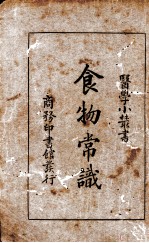 醫學小叢書
食物常識
商務印書館發行